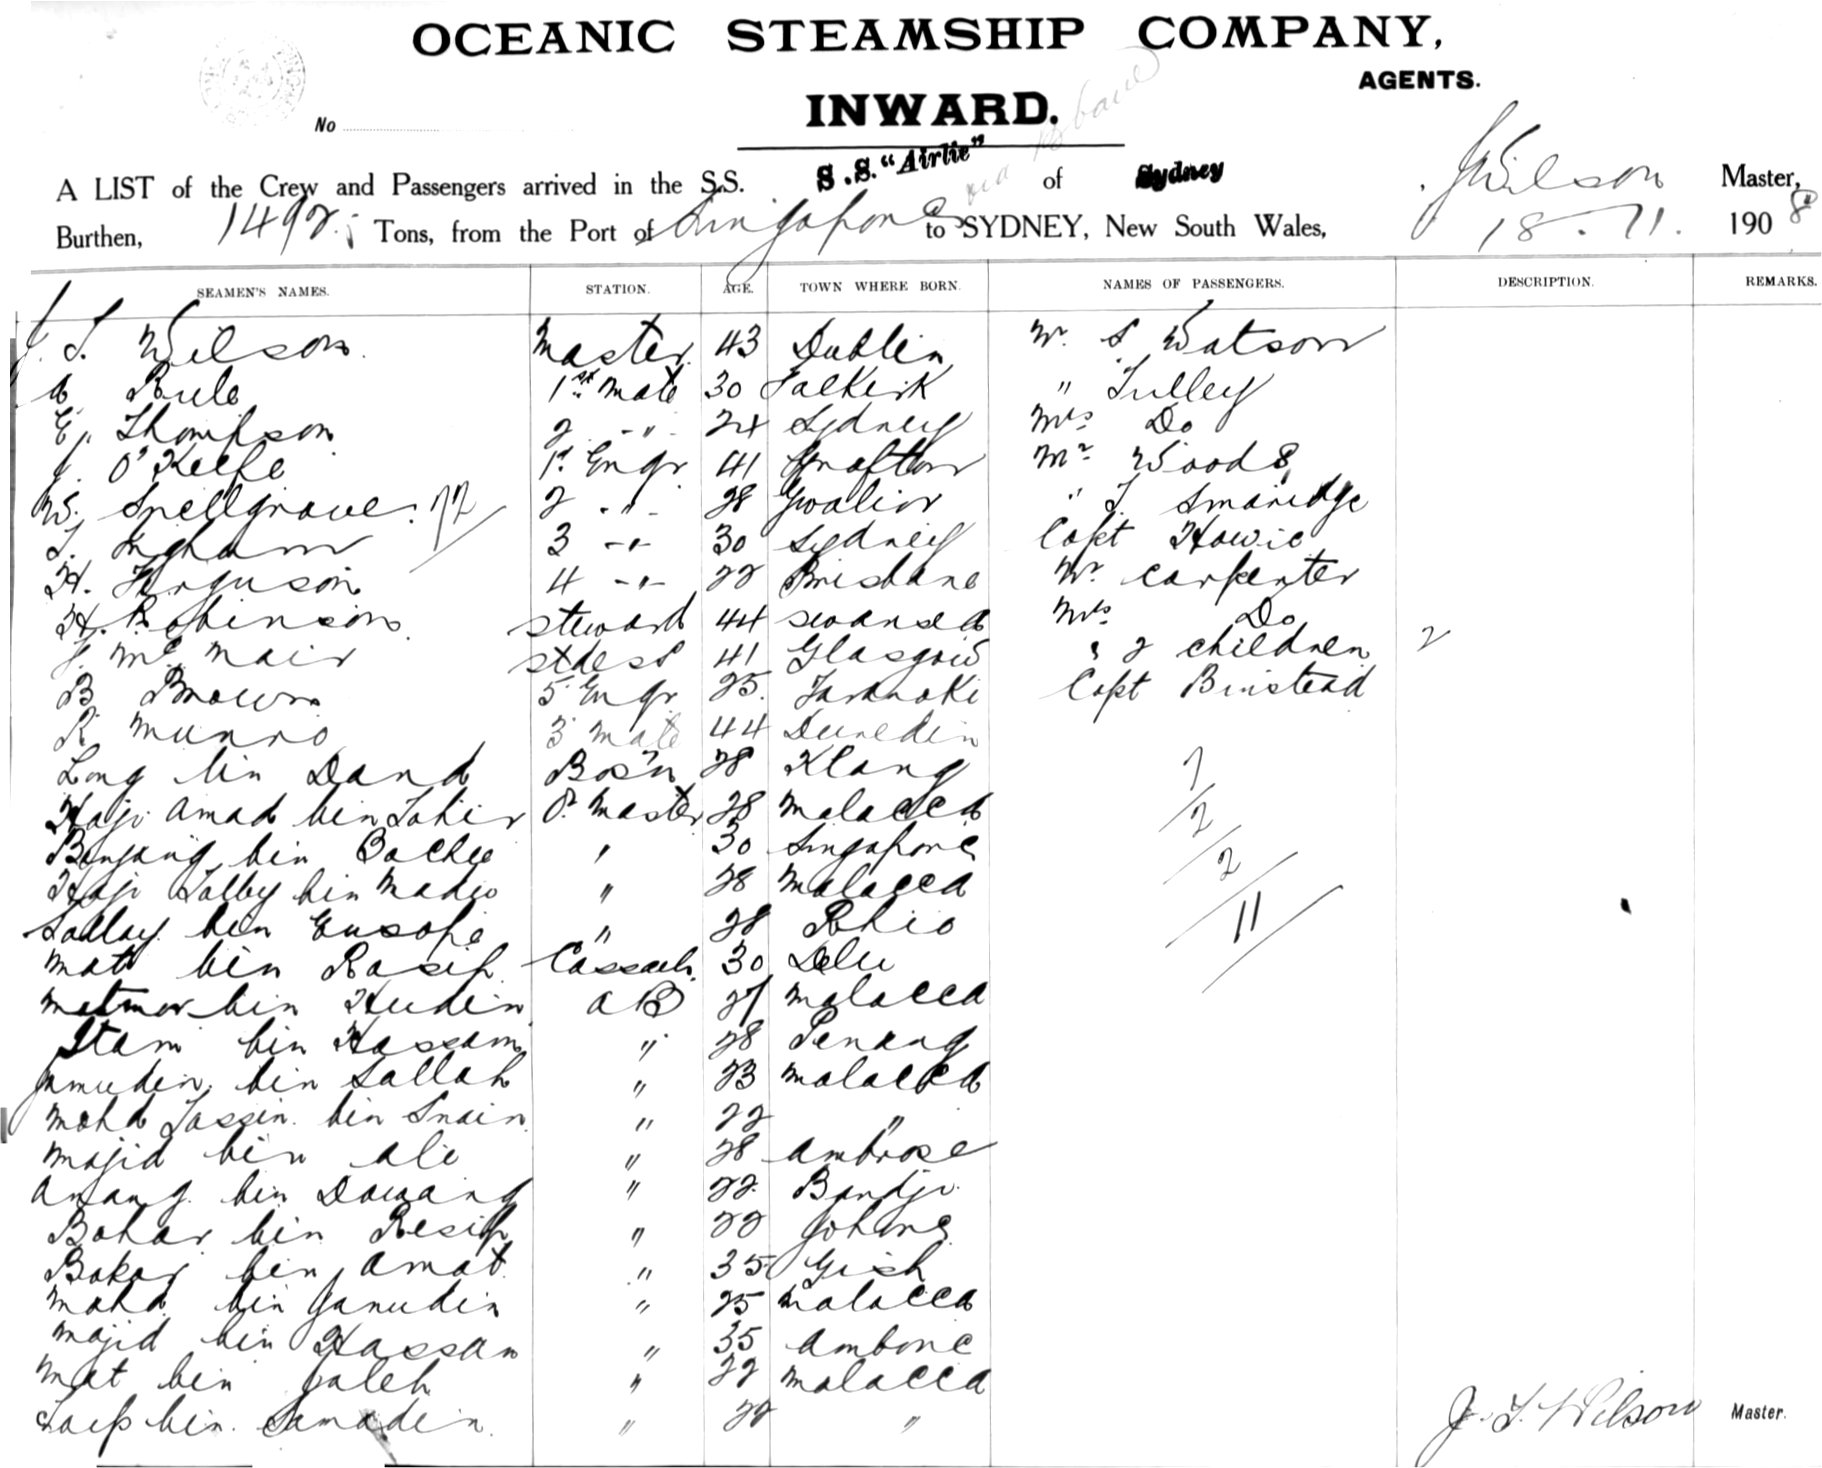 OCEANIC STEAMSHIP COMPANY,
AGENTS.
INWARD.
No
A LIST of the Crew and Passengers arrived in the S.S. S.S. "Airlie" of Sydney J Wilson Master,
Burthen, 1492 Tons, from the Port of Singapore via Brisbane to SYDNEY, New South Wales, 18.11. 1908
SEAMEN'S NAMES. STATION. AGE. TOWN WHERE BORN. NAMES OF PASSENGERS. DESCRIPTION. REMARKS.
J. T. Wilson Master 43 Dublin Mr. S Watson
A Rule 1st Mate 30 Falkirk " Tulley
E. Thompson 2 - " - 24 Sydney Mrs Do
J. O'Keefe 1st Engr 41 Grafton Mr Woods
W. Snellgrove 72 2 - " - 28 Gwalior " T. Smaridge
T. Ingham 3 - " - 30 Sydney Capt Howie
H. Ferguson 4 - " - 22 Brisbane Mr. Carpenter
H. Robinson steward 44 Swansea Mrs Do
J. Mc Nair stdess 41 Glasgow " 2 children 2
B Brown 5 Engr 25. Taranaki Capt Binstead
R Munro 3 Mate 44 Dunedin
Long bin Daud Bos'n 28 Klang 7
Haji Amad bin Tahir Q. Master 28 Malacca 2
Bonjang bin Bachee " 30 Singapore 2
Haji Salley bin Madio " 28 Malacca 11
Salley bin Eusope " 28 Rhio
Mat bin Rasip Cassab 30 Delu
bin Hudin AB 27 Malacca
Itam bin Hassam " 28 Penang
Jamudin bin Sallah " 23 Malacca
Mohd Tassin bin Snain " 22 "
Majid bin Ali " 28 Ambrose
Anang bin Dawang " 22 Bandji
Bahar bin Resip " 22 Johore
Bakar bin Amat " 35 Gish
Mohd bin Janudin " 25 Malacca
Majid bin Hassan " 35 Ambone
Mat bin Saleh " 22 Malacca
Taip bin Samadin " 22 "
J. T. Wilson Master.